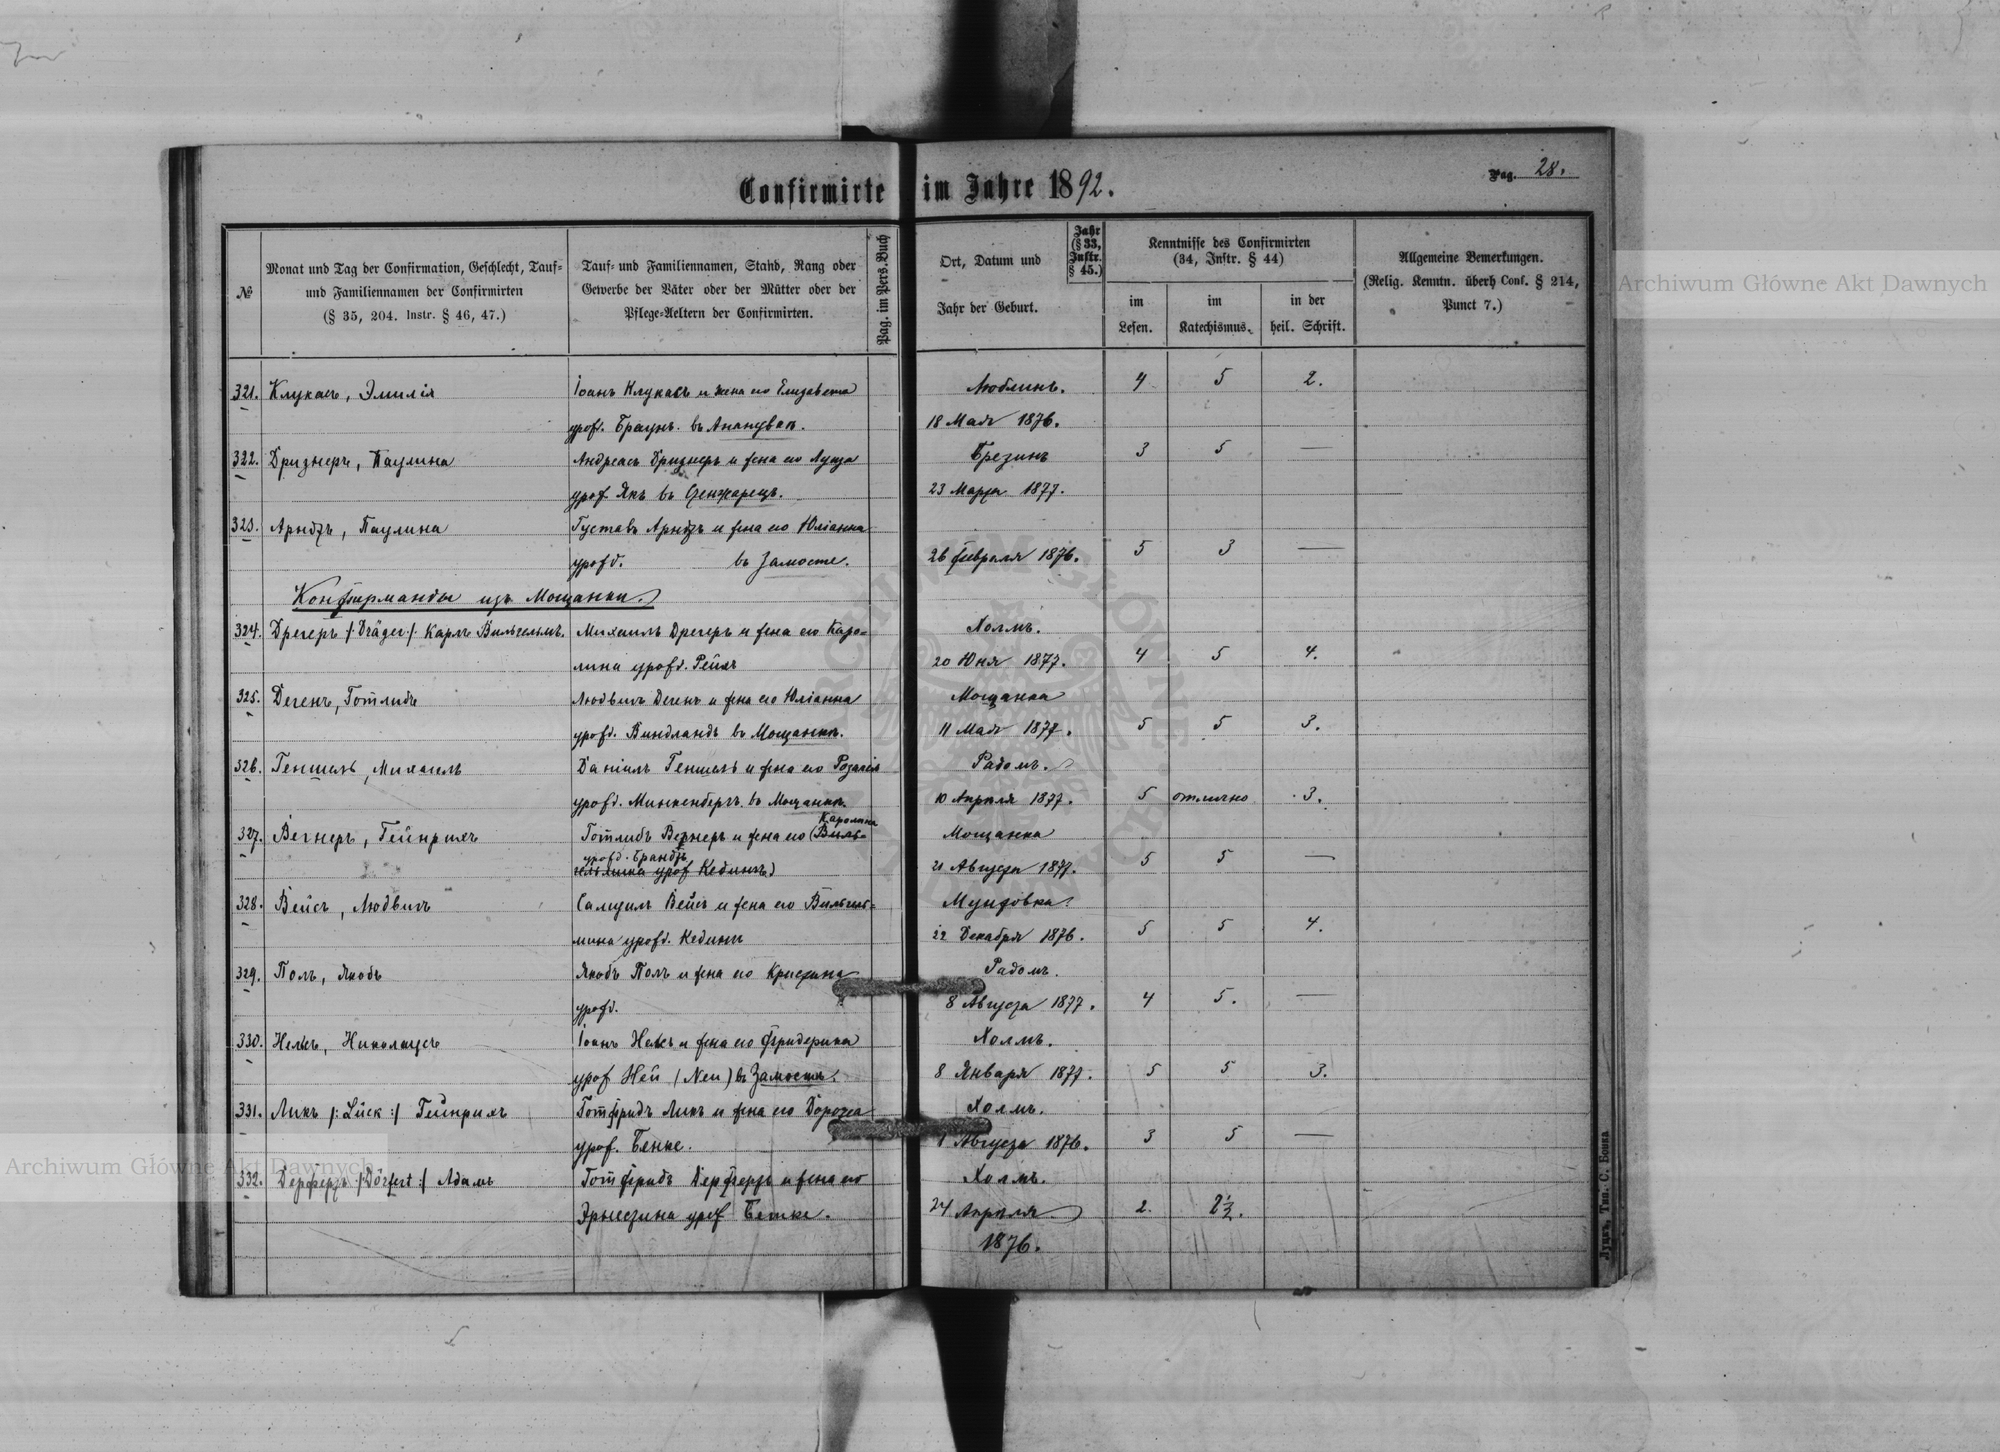 Confirmirte im Jahre 1892.
Pag. 28.
№
Monat und Tag der Confirmation, Geschlecht, Tauf-
und Familiennamen der Confirmirten
(§ 35, 204. Instr. § 46, 47.)
Tauf- und Familiennamen, Stand, Rang oder
Gewerbe der Väter oder der Mütter oder der
Pflege-Aeltern der Confirmirten.
Pag. im Pers.Buch
Ort, Datum und
Jahr der Geburt.
Jahr
(§ 33,
Instr.
§ 45.)
Kenntnisse des Confirmirten
(34, Instr. § 44)
im
Lesen.
im
Katechismus.
in der
heil. Schrift.
Allgemeine Bemerkungen.
(Relig. Kenntn. überh Conf. § 214,
Punct 7.)
321. Клукасъ, Эмилія Іоанъ Клукасъ и жена его Елизавета Люблинъ. 4 5 2.
урожд. Браунъ. въ 18 Мая 1876.
322. Дризнеръ, Паулина Андреасъ Дризнеръ и жена его Луиза Брезинъ 3 5 —
урож Якъ въ 23 Марта 1877.
323. Арндтъ, Паулина Густавъ Арндтъ и жена его Юліанна
урожд. въ Замосте. 26 Февраля 1876. 5 3 —
Конфирманды изъ Мощанки.
324. Дрегеръ /: Dräger :/ Карлъ Вильгельмъ. Михаилъ Дрегеръ и жена его Каро= Холмъ.
лина урожд. Рейхъ 20 Юня 1877. 4 5 4.
325. Дегенъ, Готлибъ Людвигъ Дегенъ и жена его Юліанна Мощанка
урожд. Виндландъ въ Мощанкѣ. 11 Мая 1877. 5 5 3.
326. Геншель, Михаель Даніилъ Геншель и жена его Розалія Радомъ.
урожд. Минкенбергъ. въ Мощанкѣ. 10 Апрѣля 1877. 5 отлично 3.
Каролина
327. Вегнеръ, Гейнрихъ Готлибъ Вегнеръ и жена его (Виль= Мощанка
урожд. Брандтъ
гельмина урож Кединъ) 21 Августа 1877. 5 5 —
328. Вейсъ, Людвигъ Самуилъ Вейсъ и жена его Вильгель=
мина урожд. Кединъ 22 Декабря 1876. 5 5 4.
329. Полъ, Якобъ Якобъ Полъ и жена его Кристина Радомъ.
урожд. 8 Августа 1877. 4 5. —
330. Николаусъ Іоанъ и жена его Фридерика Холмъ.
урож Ней (Neu) въ Замостѣ. 8 Января 1877. 5 5 3.
331. Ликъ /: Lück :/ Гейнрихъ Готфридъ Ликъ и жена его Доротеа Холмъ.
урож. Бенке. 1 Августа 1876. 3 5 —
332. Дерфертъ /: Dörfert :/ Адамъ Готфридъ Дерфертъ и жена его Холмъ.
Эрнестина урож Бетке. 24 Апрѣля 2. 2½.
1876.
Луцкъ, Тип. С. Бонка
Archiwum Główne Akt Dawnych
Archiwum Główne Akt Dawnych
ARCHIWUM GŁÓWNE AKT DAWNYCH